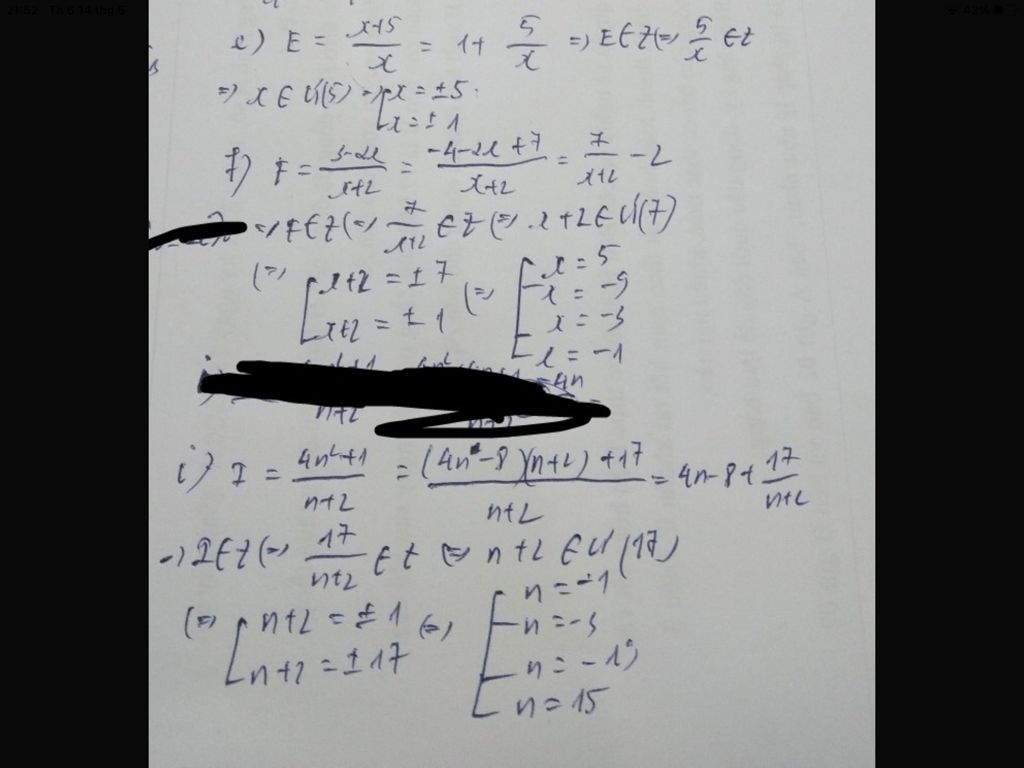 21:52 Th 6 14 thg 5
42%
e) E = \frac{x+5}{x} = 1+ \frac{5}{x} => E∈Z <=> \frac{5}{x} ∈Z
=> x ∈ Ư(5) => [x = ±5
x = ±1
f) F = \frac{3-2x}{x+2} = \frac{-4-2x+7}{x+2} = \frac{7}{x+2} -2
=> F∈Z <=> \frac{7}{x+2} ∈ Z <=> x+2 ∈ Ư(7)
<=> [x+2 = ±7 <=> [x = 5
x = -9
x+2 = ±1 x = -3
x = -1
=4n
n+2
i) I = \frac{4n²+1}{n+2} = \frac{(4n-8)(n+2)+17}{n+2} = 4n-8+\frac{17}{n+2}
=> I∈Z <=> \frac{17}{n+2} ∈Z <=> n+2 ∈ Ư(17)
<=> [n+2 = ±1 <=> [n = -1
n = -3
n+2 = ±17 n = -19
n = 15